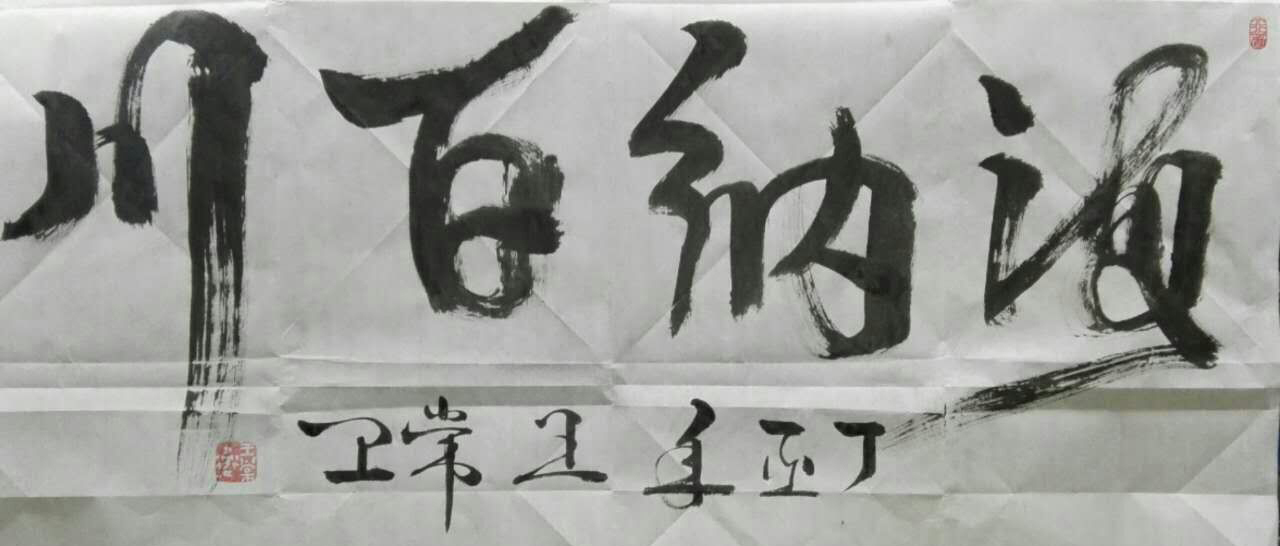 海纳百川
丁酉年王常卫